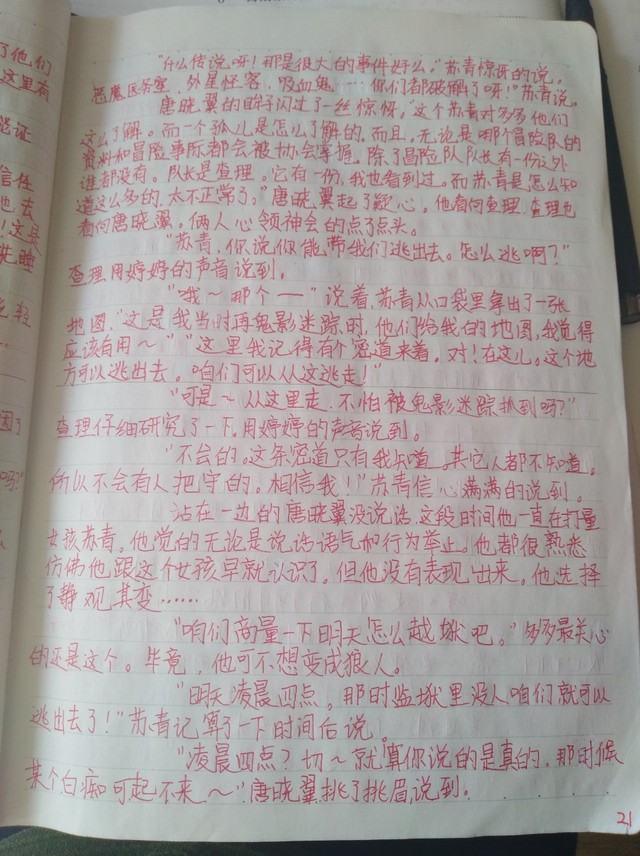 了他们
这里有
“什么传说呀！那是很大的事件好么。”苏青惊讶的说。
恶魔医务室，外星怪客，吸血鬼……你们都破解了呀！”苏青说。
唐晓翼的眸子闪过了一丝惊讶。“这个苏青对多多他们
这么了解。而一个孤儿是怎么了解的，而且，无论是哪个冒险队的
资料和冒险事际都会被协会掌握，除了冒险队队长有一份之外
谁都没有。队长是查理。它有一份，我也看到过。而苏青是怎么知
道这么多的，太不正常了。”唐晓翼起了疑心，他看向查理，查理也
看向唐晓翼。俩人心领神会的点了点头。
“苏青，你说你能带我们逃出去。怎么逃啊？”
查理用婷婷的声音说到。
“哦～那个——”说着，苏青从口袋里拿出了一张
地图，“这是我当时再鬼影迷踪时，他们给我的地图，我觉得
应该自用～”“这里我记得有个密道来着。对！在这儿。这个地
方可以逃出去。咱们可以从这逃走！”
“可是～从这里走，不怕被鬼影迷踪抓到吗？”
查理仔细研究了一下，用婷婷的声音说到。
“不会的。这条密道只有我知道。其它人都不知道。
所以不会有人把守的。相信我！”苏青信心满满的说到。
站在一边的唐晓翼没说话，这段时间他一直在打量
女孩苏青。他觉的无论是说话语气和行为举止。他都很熟悉
仿佛他跟这个女孩早就认识了。但他没有表现出来。他选择
了静观其变……
“咱们商量一下明天怎么越狱吧。”多多最关心
的还是这个。毕竟，他可不想变成狼人。
“明天凌晨四点。那时监狱里没人咱们就可以
逃出去了！”苏青记算了一下时间后说。
“凌晨四点？切～就算你说的是真的，那时候
某个白痴可起不来～”唐晓翼挑了挑眉说到。
21